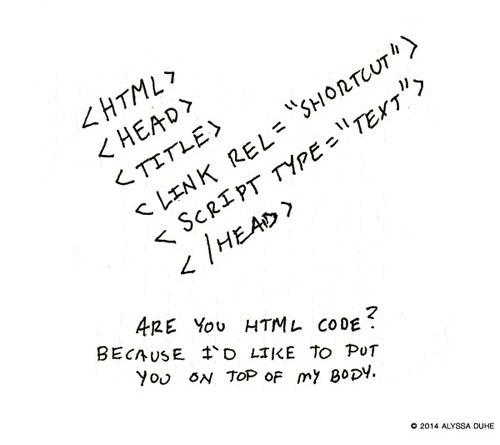 <HTML>
<HEAD>
<TITLE>
<LINK REL="SHORTCUT">
<SCRIPT TYPE="TEXT">
</HEAD>
ARE YOU HTML CODE?
BECAUSE I'D LIKE TO PUT
YOU ON TOP OF MY BODY.
© 2014 ALYSSA DUHE